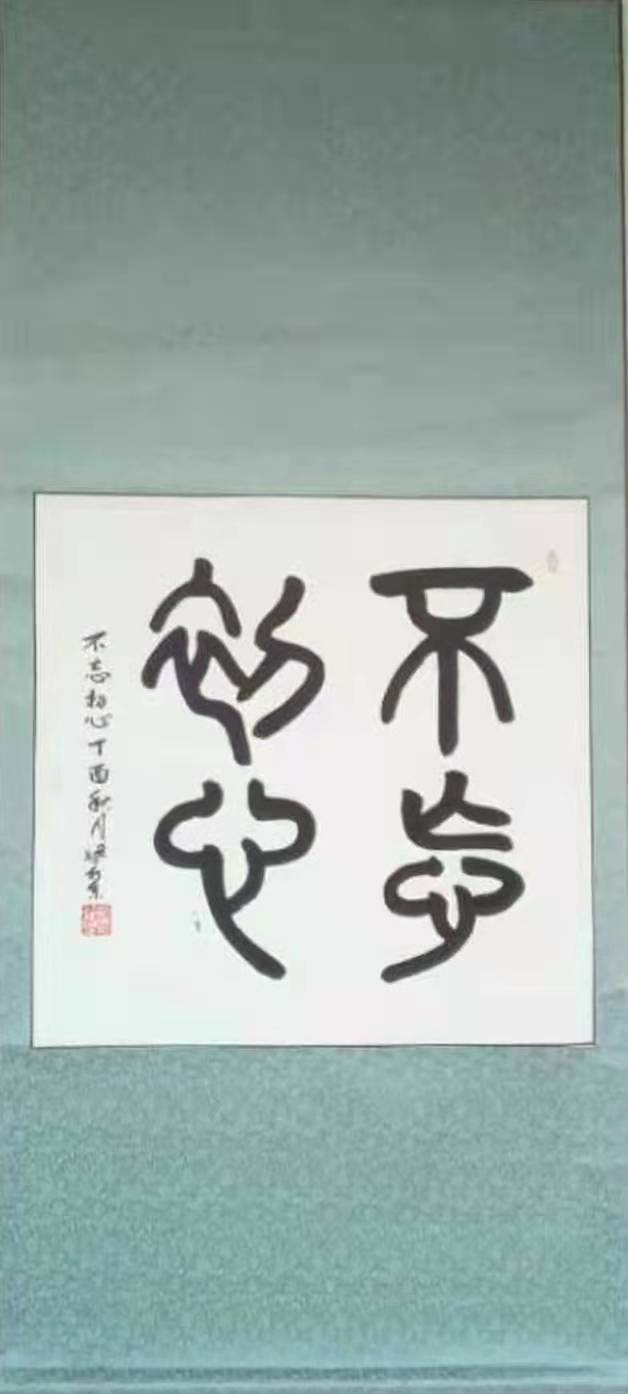 不忘
初心
不忘初心丁酉秋月